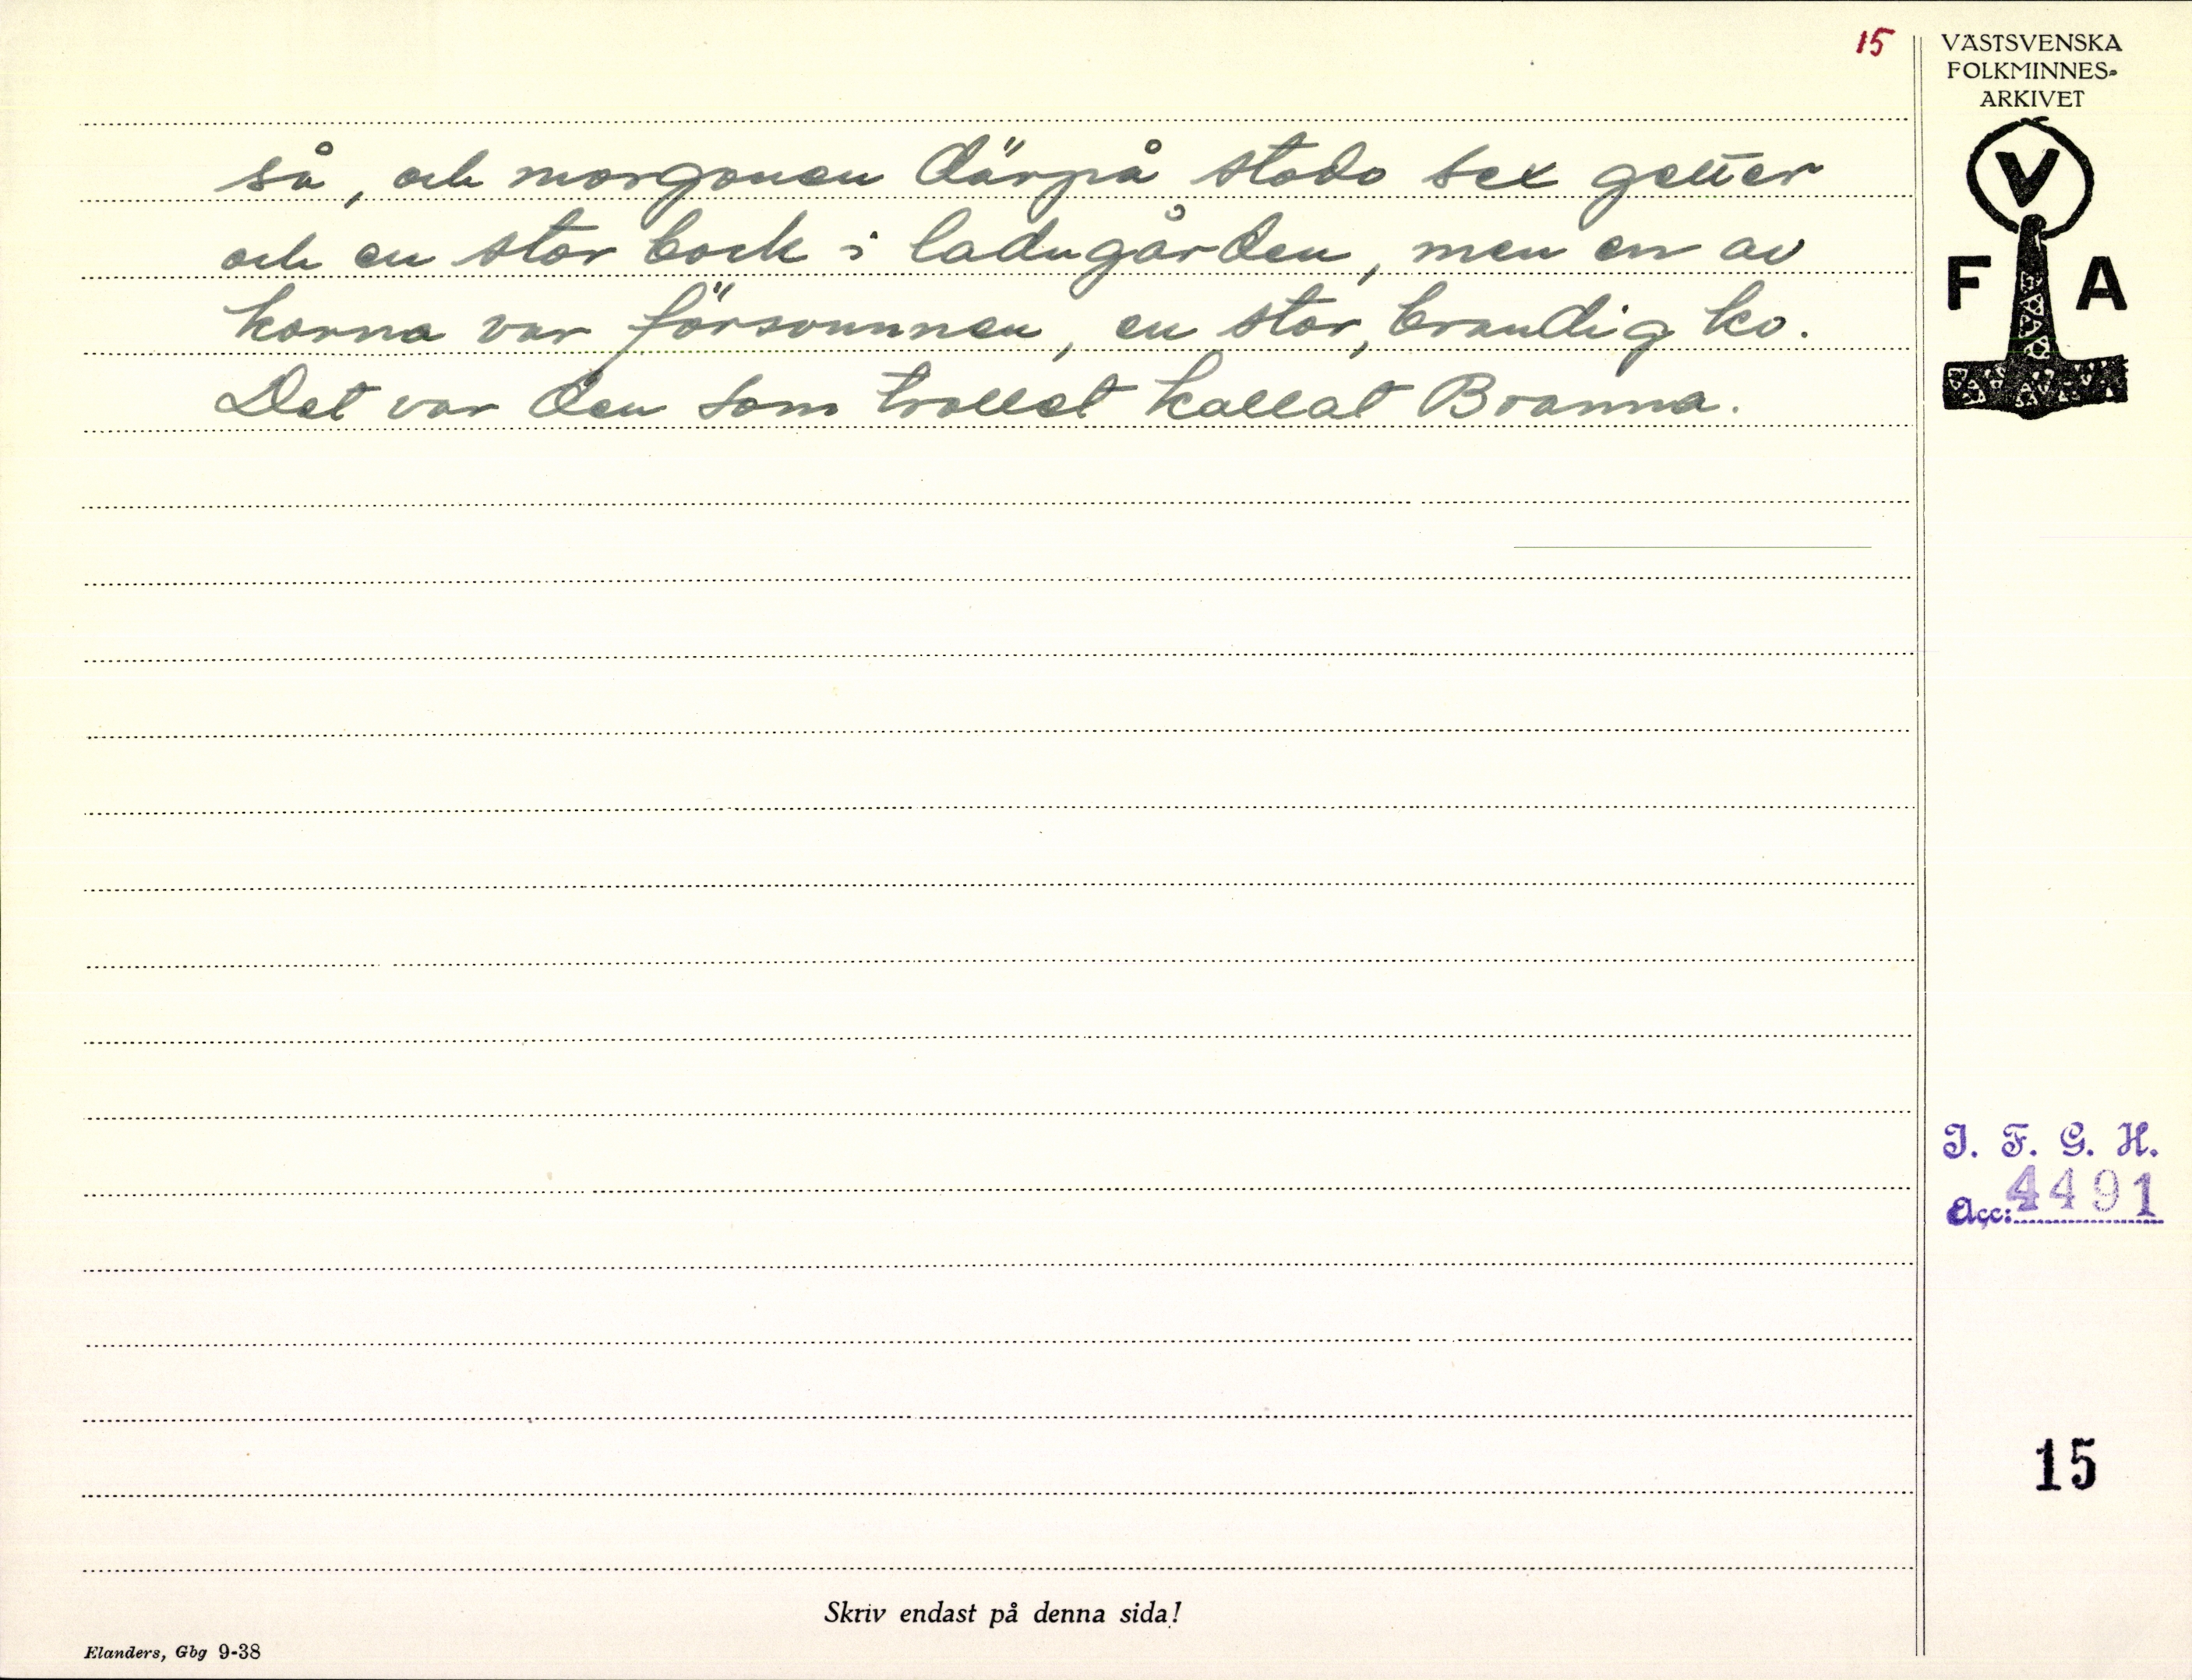 15
VÄSTSVENSKA
FOLKMINNES-
ARKIVET
V
F A
så, och morgonen därpå stodo sex getter
och en stor bock i ladugården, men en av
korna var försvunnen, en stor, brandig ko.
Det var den som trollet kallat Branna.
I. F. G. H.
Acc: 4491
15
Skriv endast på denna sida!
Elanders, Gbg 9-38